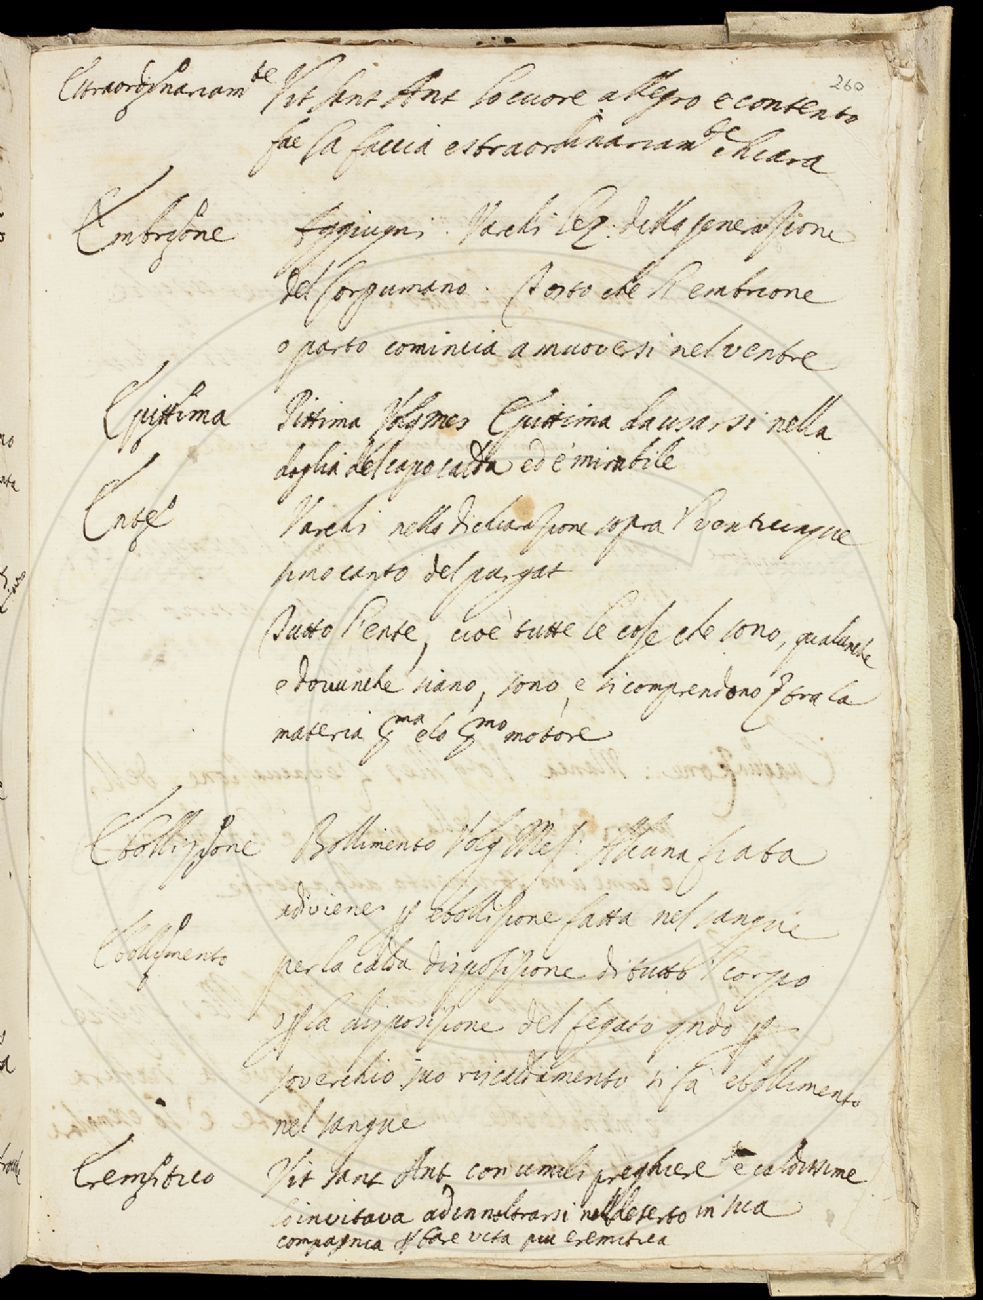 260
Estraordinariam.te Vit Sant Ant Lo cuore allegro e contento
fae la faccia estraordinariam.te chiara
Embrione Aggiugni. Varchi Lez. della generazione
del Corp umano. Tosto che l'embrione
o parto comincia a muoversi nel ventre
Epittima Pittima Volg Mes Epittima da usarsi nella
doglia del capo calda ed è mirabile
Ente Varchi nella dichiarazione sopra l venticinque
simo canto del purgat
Tutto l'ente, cioè tutte le cose che sono, qualunche
e dovunche siano, sono, e si comprendono tra la
materia p.ma e lo p.mo motore
Ebollizione Bollimento Volg Mes. Alcuna fiata
adiviene p ebollizione fatta nel sangue
Ebollimento
per la calda disposizione di tutto l corpo
p la disposizione del fegato qndo p
soverchio suo riscaldamento si fa ebollimento
nel sangue
Eremitico Vit Sant Ant con umili preghiere e caldissime
lo invitava ad innoltrarsi nel deserto in sua
compagnia p fare vita piu eremitica